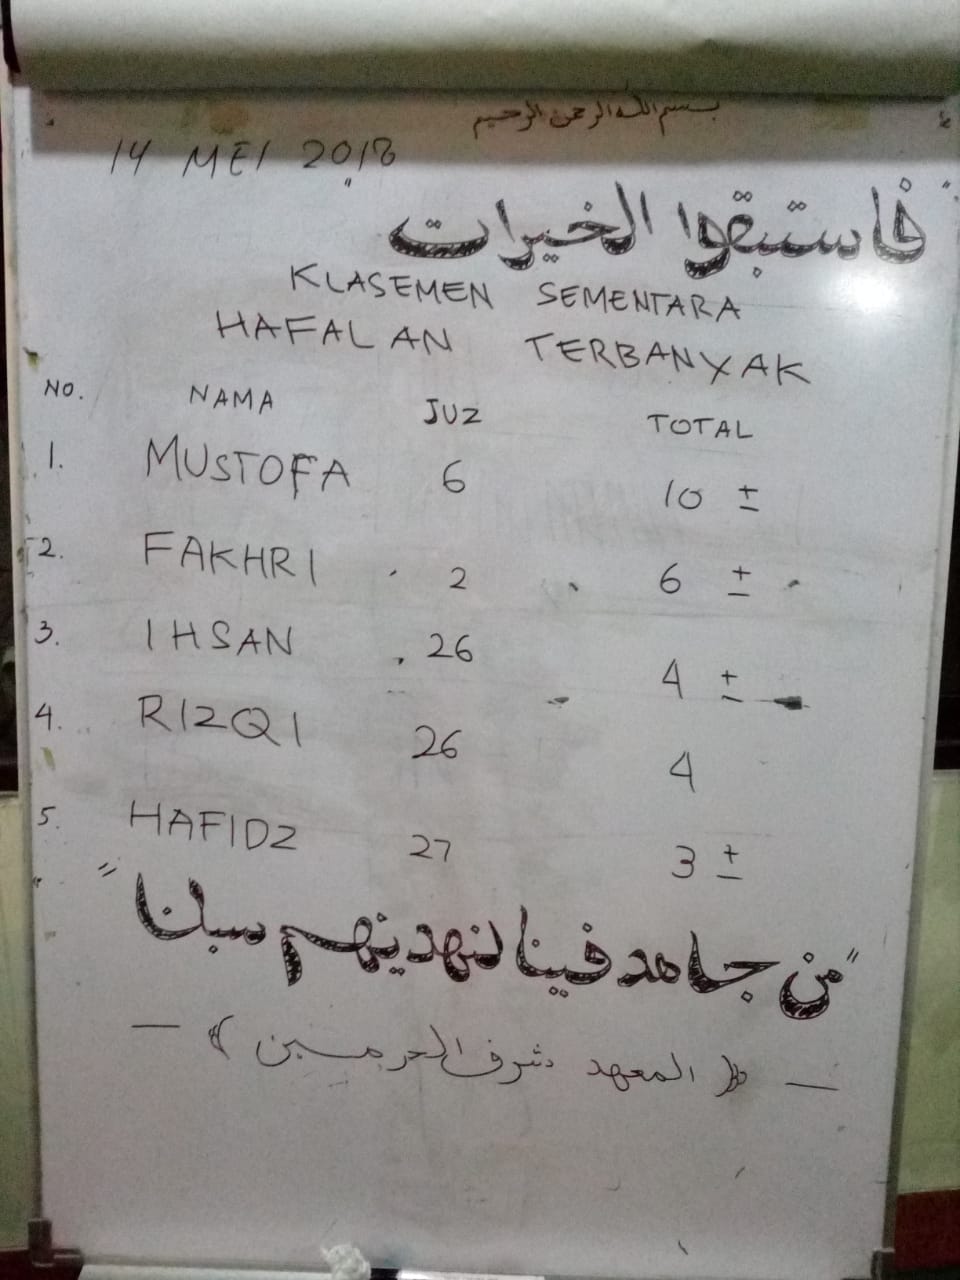 بسم الله الرحمن الرحيم
14 MEI 2018
"فاستبقوا الخيرات"
KLASEMEN SEMENTARA
HAFALAN TERBANYAK
NO. NAMA JUZ TOTAL
1. MUSTOFA 6 10 ±
2. FAKHRI 2 6 ±
3. IHSAN 26 4 ±
4. RIZQI 26 4
5. HAFIDZ 27 3 ±
"من جاهد فينا لنهدينهم سبلنا"
— (( المعهد شرف الحرمين )) —